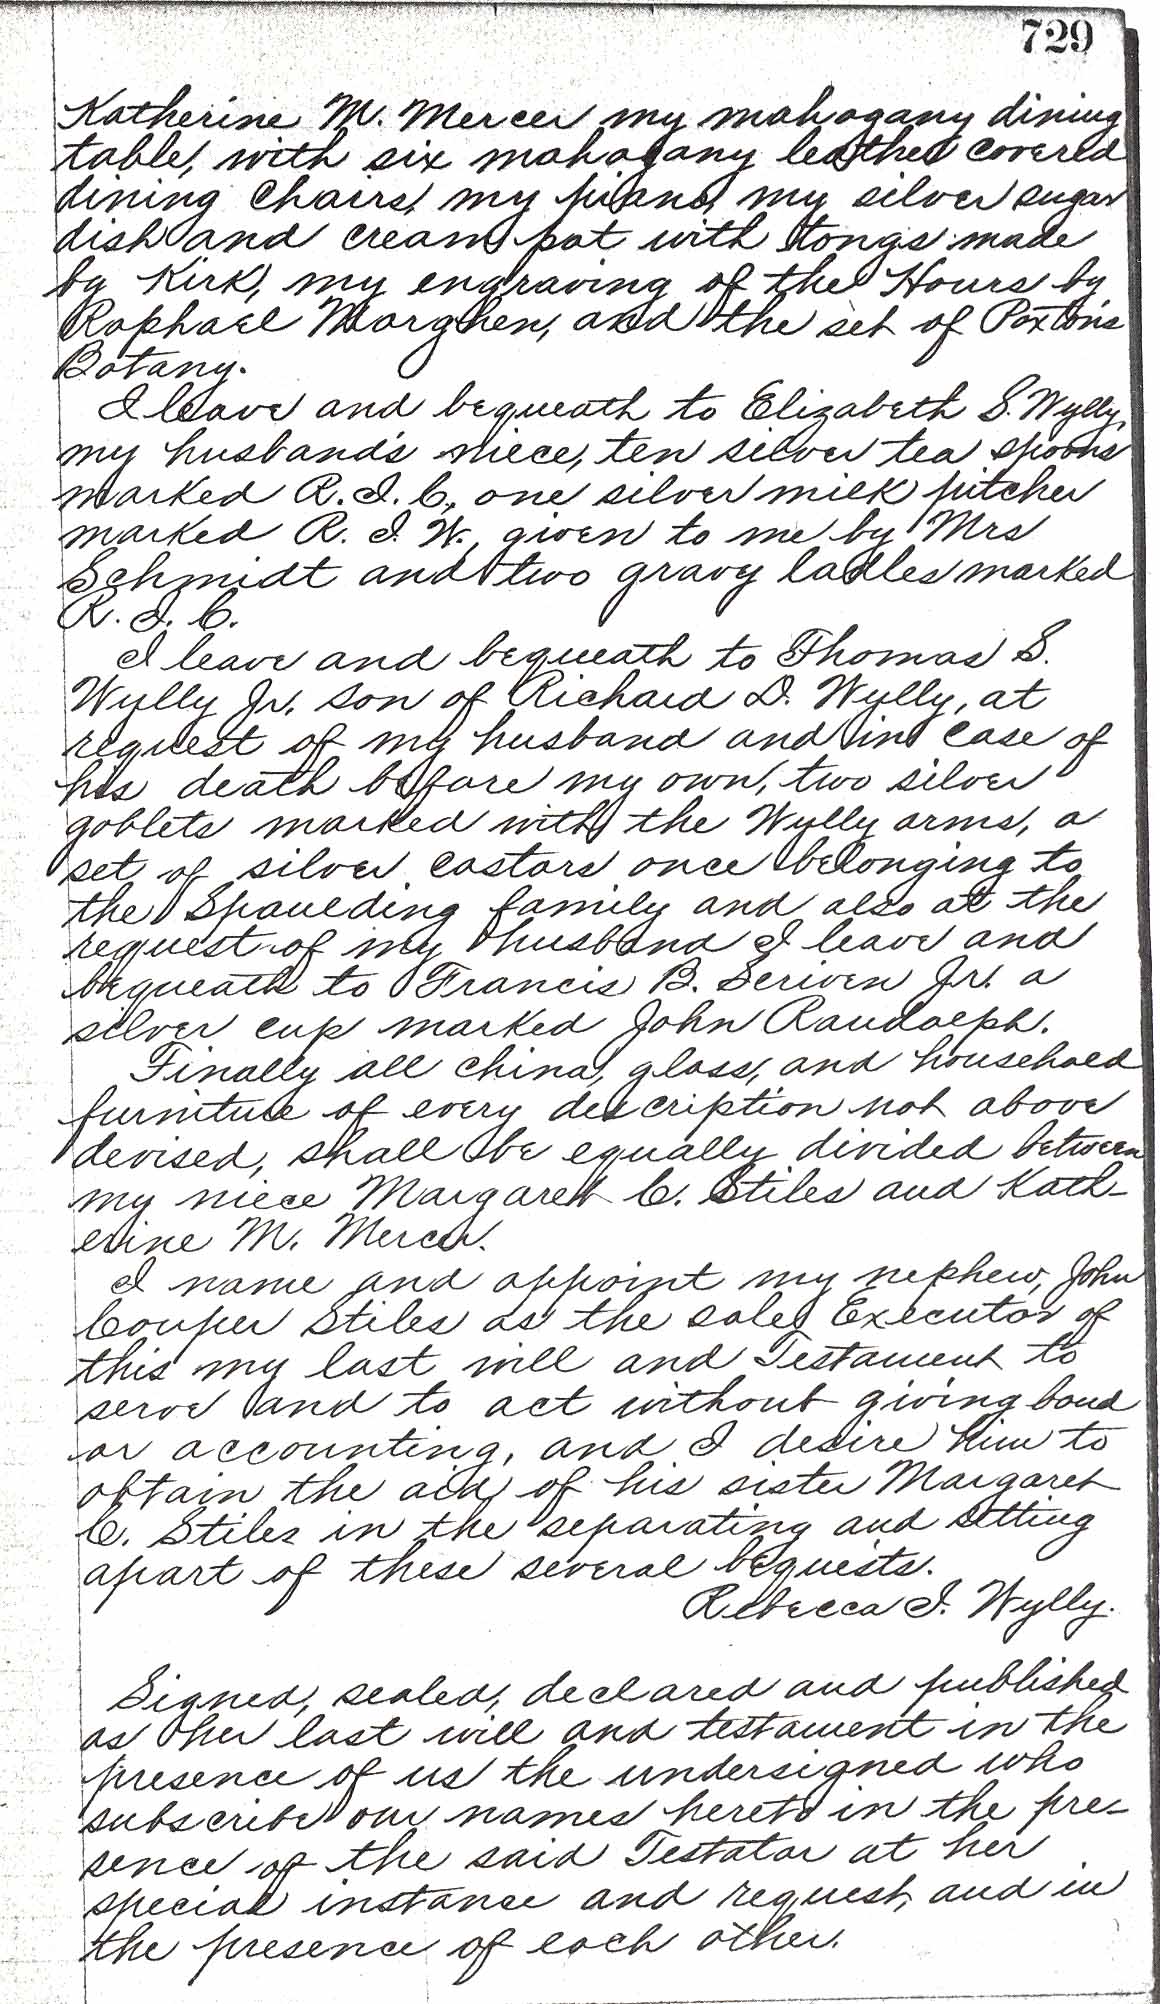 729
Katherine M. Mercer my mahogany dining
table, with six mahogany leather covered
dining chairs, my piano, my silver sugar
dish and cream pot with tongs made
by Kirk, my engraving of the Hours by
Raphael Morghen, and the set of Paxton's
Botany.
I leave and bequeath to Elizabeth S. Wylly,
my husband's niece, ten silver tea spoons
marked R. I. C., one silver milk pitcher
marked R. I. W., given to me by Mrs
Schmidt and two gravy ladles marked
R. I. C.
I leave and bequeath to Thomas S.
Wylly Jr. son of Richard D. Wylly, at
request of my husband and in case of
his death before my own, two silver
goblets marked with the Wylly arms, a
set of silver castors once belonging to
the Spaulding family and also at the
request of my husband I leave and
bequeath to Francis B. Scriven Jr. a
silver cup marked John Randolph.
Finally all china, glass, and household
furniture of every description not above
devised, shall be equally divided between
my niece Margaret C. Stiles and Kath-
erine M. Mercer.
I name and appoint my nephew, John
Couper Stiles as the sole Executor of
this my last will and Testament to
serve and to act without giving bond
or accounting, and I desire him to
obtain the aid of his sister Margaret
C. Stiles in the separating and setting
apart of these several bequests.
Rebecca I. Wylly.
Signed, sealed, declared and published
as her last will and testament in the
presence of us the undersigned who
subscribe our names hereto in the pre-
sence of the said Testator at her
special instance and request, and in
the presence of each other.